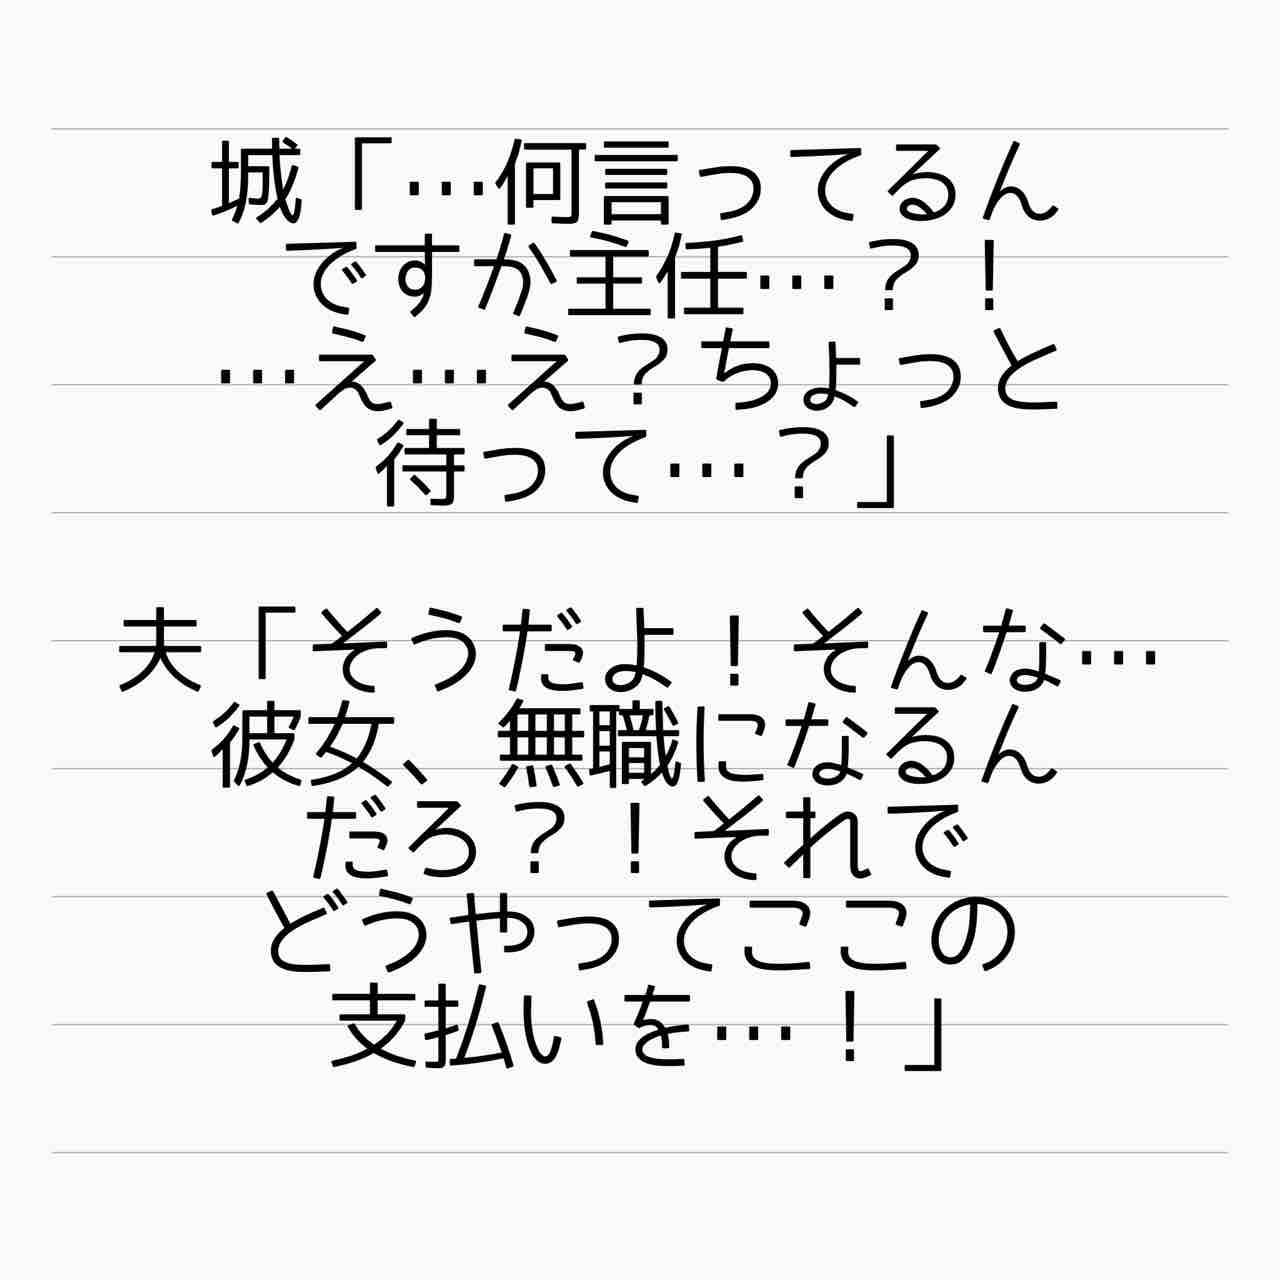 城「…何言ってるん
ですか主任…？！
…え…え？ちょっと
待って…？」
夫「そうだよ！そんな…
彼女、無職になるん
だろ？！それで
どうやってここの
支払いを…！」